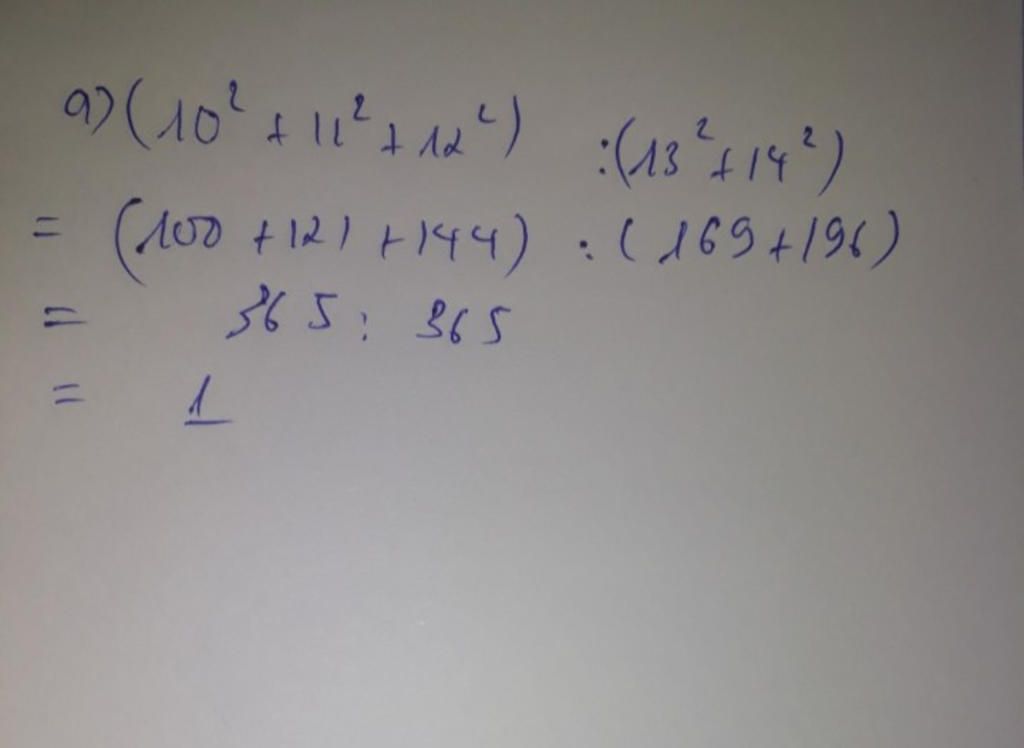 a) (10² + 11² + 12²) : (13² + 14²)
= (100 + 121 + 144) : (169 + 196)
= 365 : 365
= 1